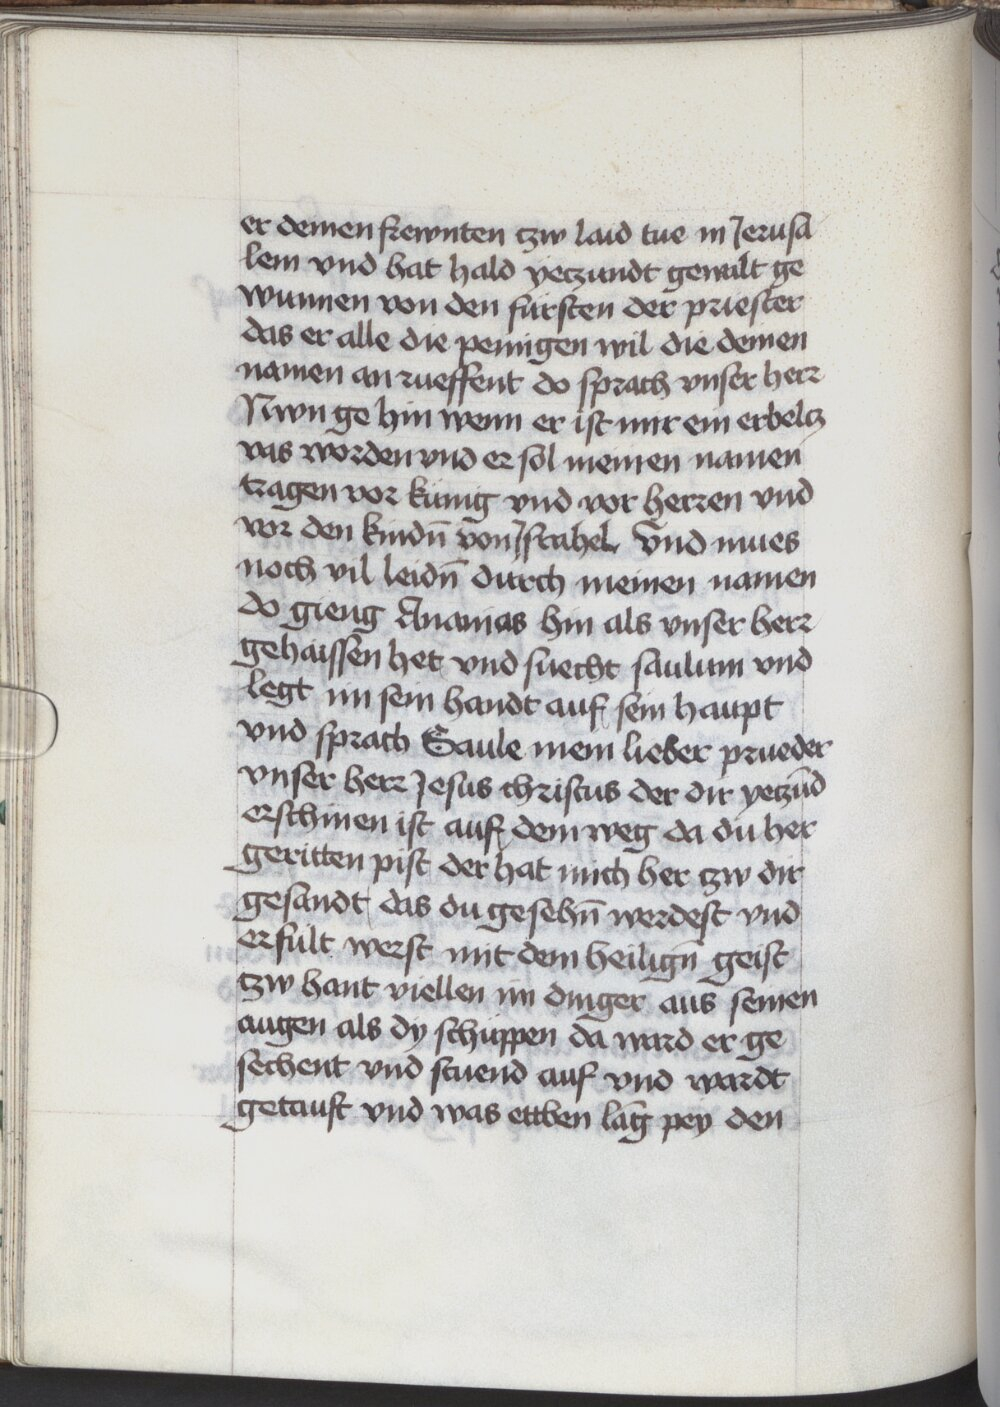 er deinen frewnten tzw laid tue in Jerusa
lem vnd hat hald yetzundt gewalt ge
wunnen von den fürsten der priester
das er alle die peinigen wil die deinen
namen an rueffent do sprach vnser herr
Nwn ge hin wenn er ist mir ein erbeltz
vas worden vnd er sol meinen namen
tragen vor künig vnd vor herren vnd
vor den kindn̄ von Jsrahel Vnd mues
noch vil leidn̄ durch meinen namen
do gieng Ananias hin als vnser herr
gehaissen het vnd suecht saulum vnd
legt im sein handt auf sein haupt
vnd sprach Saule mein lieber prueder
vnser herr Jesus christus der dir yetzūd
erschinen ist auf dem weg da du her
geritten pist der hat mich her tzw dir
gesandt das du gesehn̄ werdest vnd
erfült werst mit dem heilign̄ geist
tzw hant viellen im dinger aus seinen
augen als dy schüppen da ward er ge
sechent vnd stuend auf vnd wardt
getauft vnd was ettben lāg pey den